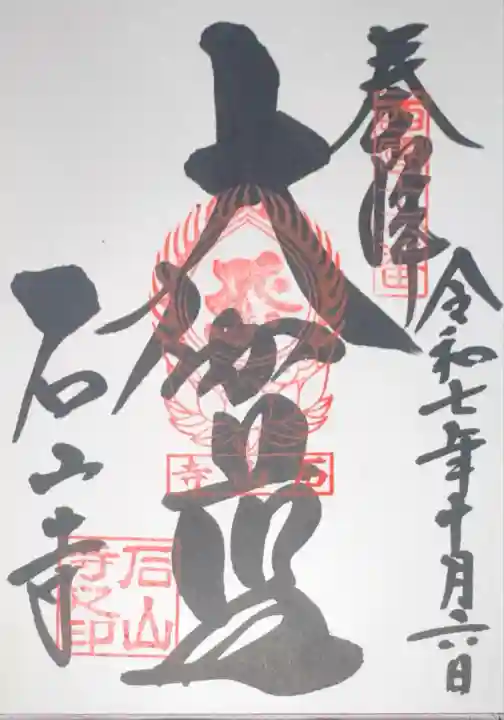 奉拝
西国十三番
令和七年十月六日
大伽藍
石山寺
石山寺
石山寺之印